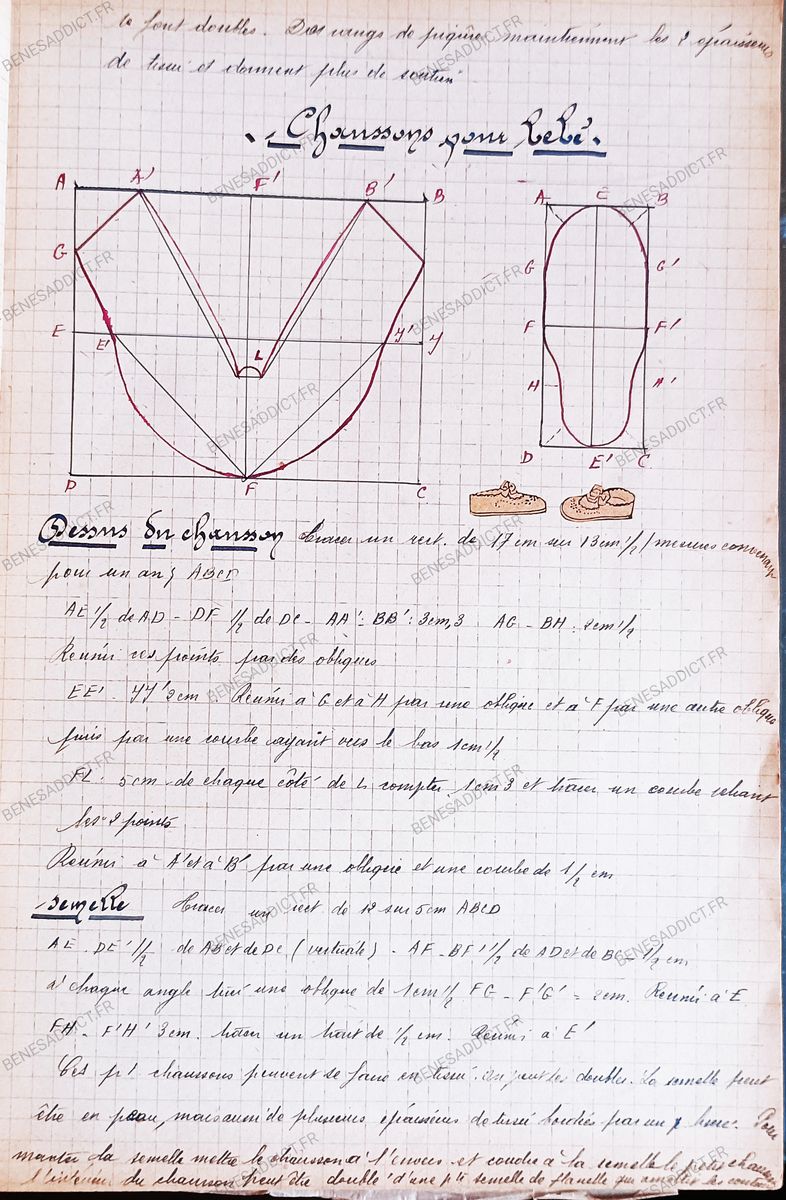 le font doubles. Des rangs de piqûres maintiennent les 2 épaisseurs
de tissu et donnent plus de soutien
Chaussons pour bébé.
A A' F' B' B
G
E E' L Y' Y
D F C
A E B
G G'
F F'
H H'
D E' C
Dessus du chausson Tracer un rect. de 17 cm sur 13 cm 1/2 (mesures convenant
pour un an) ABCD
AE 1/2 de AD - DF 1/2 de DC - AA' : BB' : 3cm,3 AG - BH : 2cm 1/2
Réunir ces points par des obliques
EE' - YY' 2cm Réunir à G et à H par une oblique et à F par une autre oblique
puis par une courbe ayant vers le bas 1cm 1/2
FL : 5cm - de chaque côté de L compter 1cm 3 et tracer un courbe reliant
les 2 points
Réunir à A' et à B' par une oblique et une courbe de 1/2 cm
Semelle Tracer un rect de 12 sur 5cm ABCD
AE - DE' 1/2 de AB et de DC (verticale) - AF - BF' 1/2 de AD et de BC - 1/2 cm
à chaque angle une oblique de 1cm 1/2 FG - F'G' = 2cm. Réunir à E.
FH - F'H' 3cm. un de 1/2 cm. Réunir à E'
Ces pt chaussons peuvent se faire en tissu. On peut les doubler. La semelle peut
être en peau, mais aussi de plusieurs épaisseurs de tissu bordées par un Pour
monter la semelle mettre le chausson à l'envers et coudre à la semelle le
l'intérieur du chausson peut être doublé d'une pte semelle de flanelle qui
BENESADDICT.FR